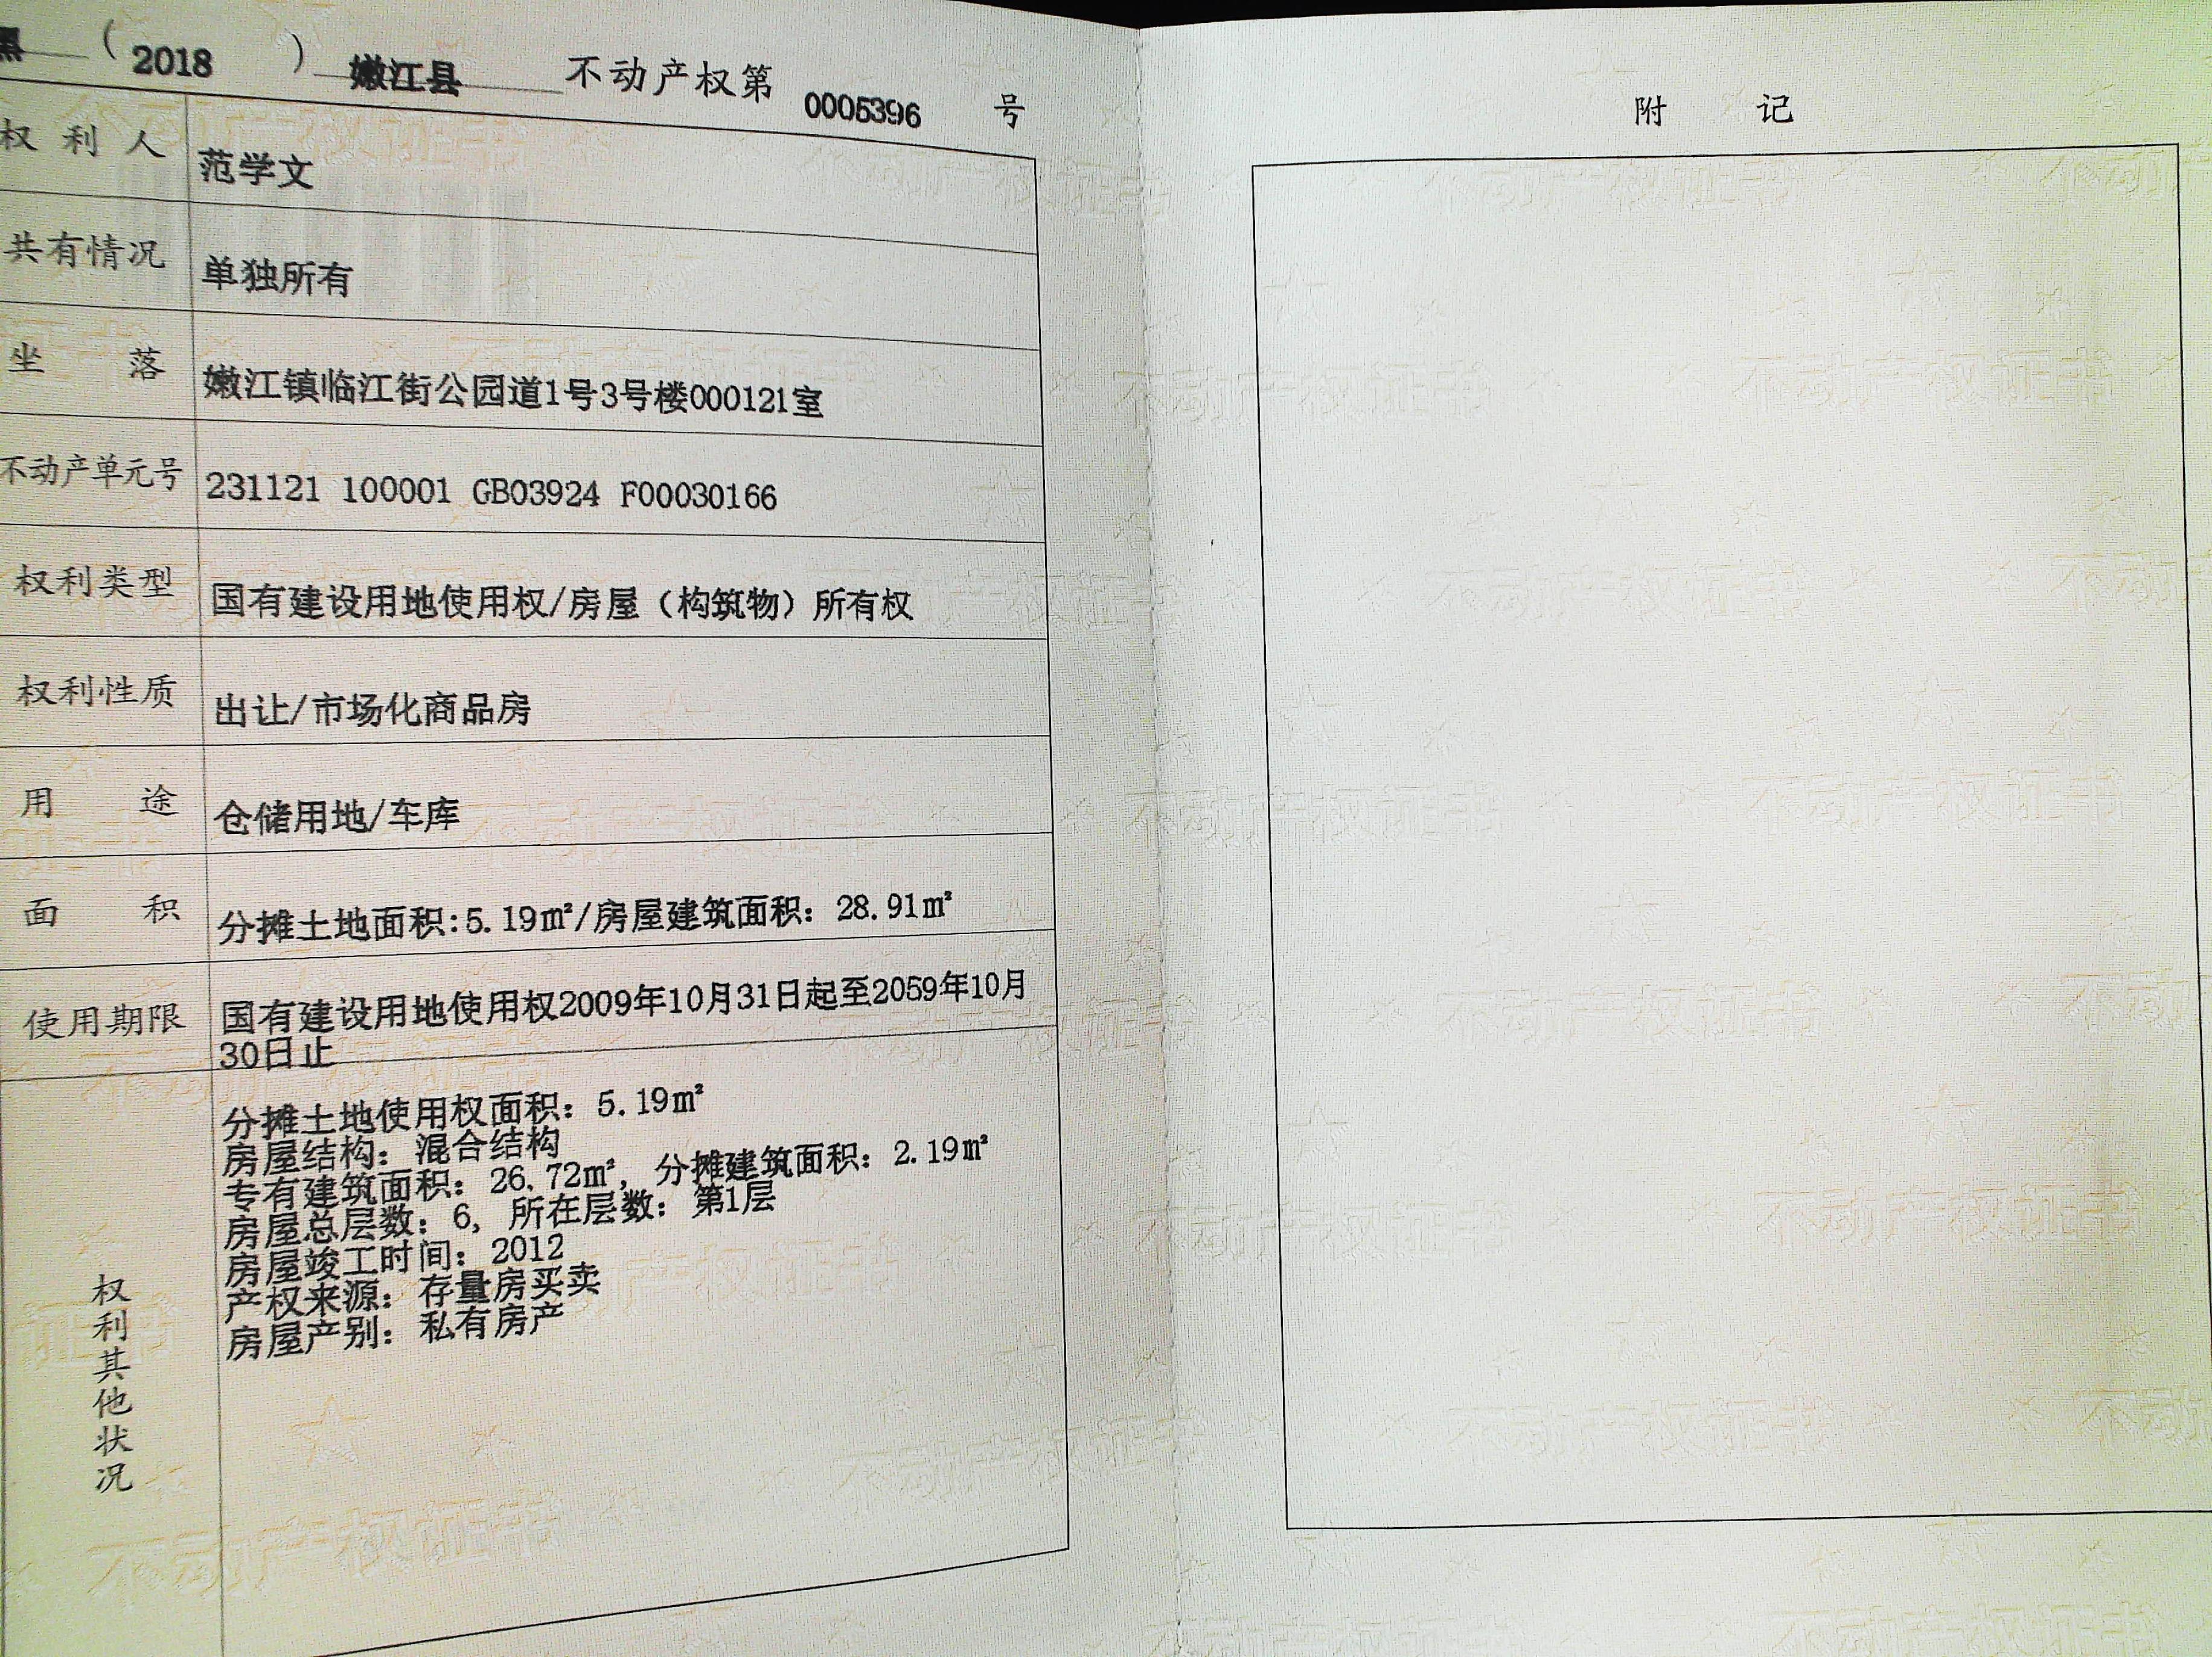 黑（2018）嫩江县不动产权第0005396号
权利人 范学文
共有情况 单独所有
坐落 嫩江镇临江街公园道1号3号楼000121室
不动产单元号 231121 100001 GB03924 F00030166
权利类型 国有建设用地使用权/房屋（构筑物）所有权
权利性质 出让/市场化商品房
用途 仓储用地/车库
面积 分摊土地面积:5.19㎡/房屋建筑面积：28.91㎡
使用期限 国有建设用地使用权2009年10月31日起至2059年10月
30日止
权利其他状况
分摊土地使用权面积：5.19㎡
房屋结构：混合结构
专有建筑面积：26.72㎡，分摊建筑面积：2.19㎡
房屋总层数：6，所在层数：第1层
房屋竣工时间：2012
产权来源：存量房买卖
房屋产别：私有房产
附记